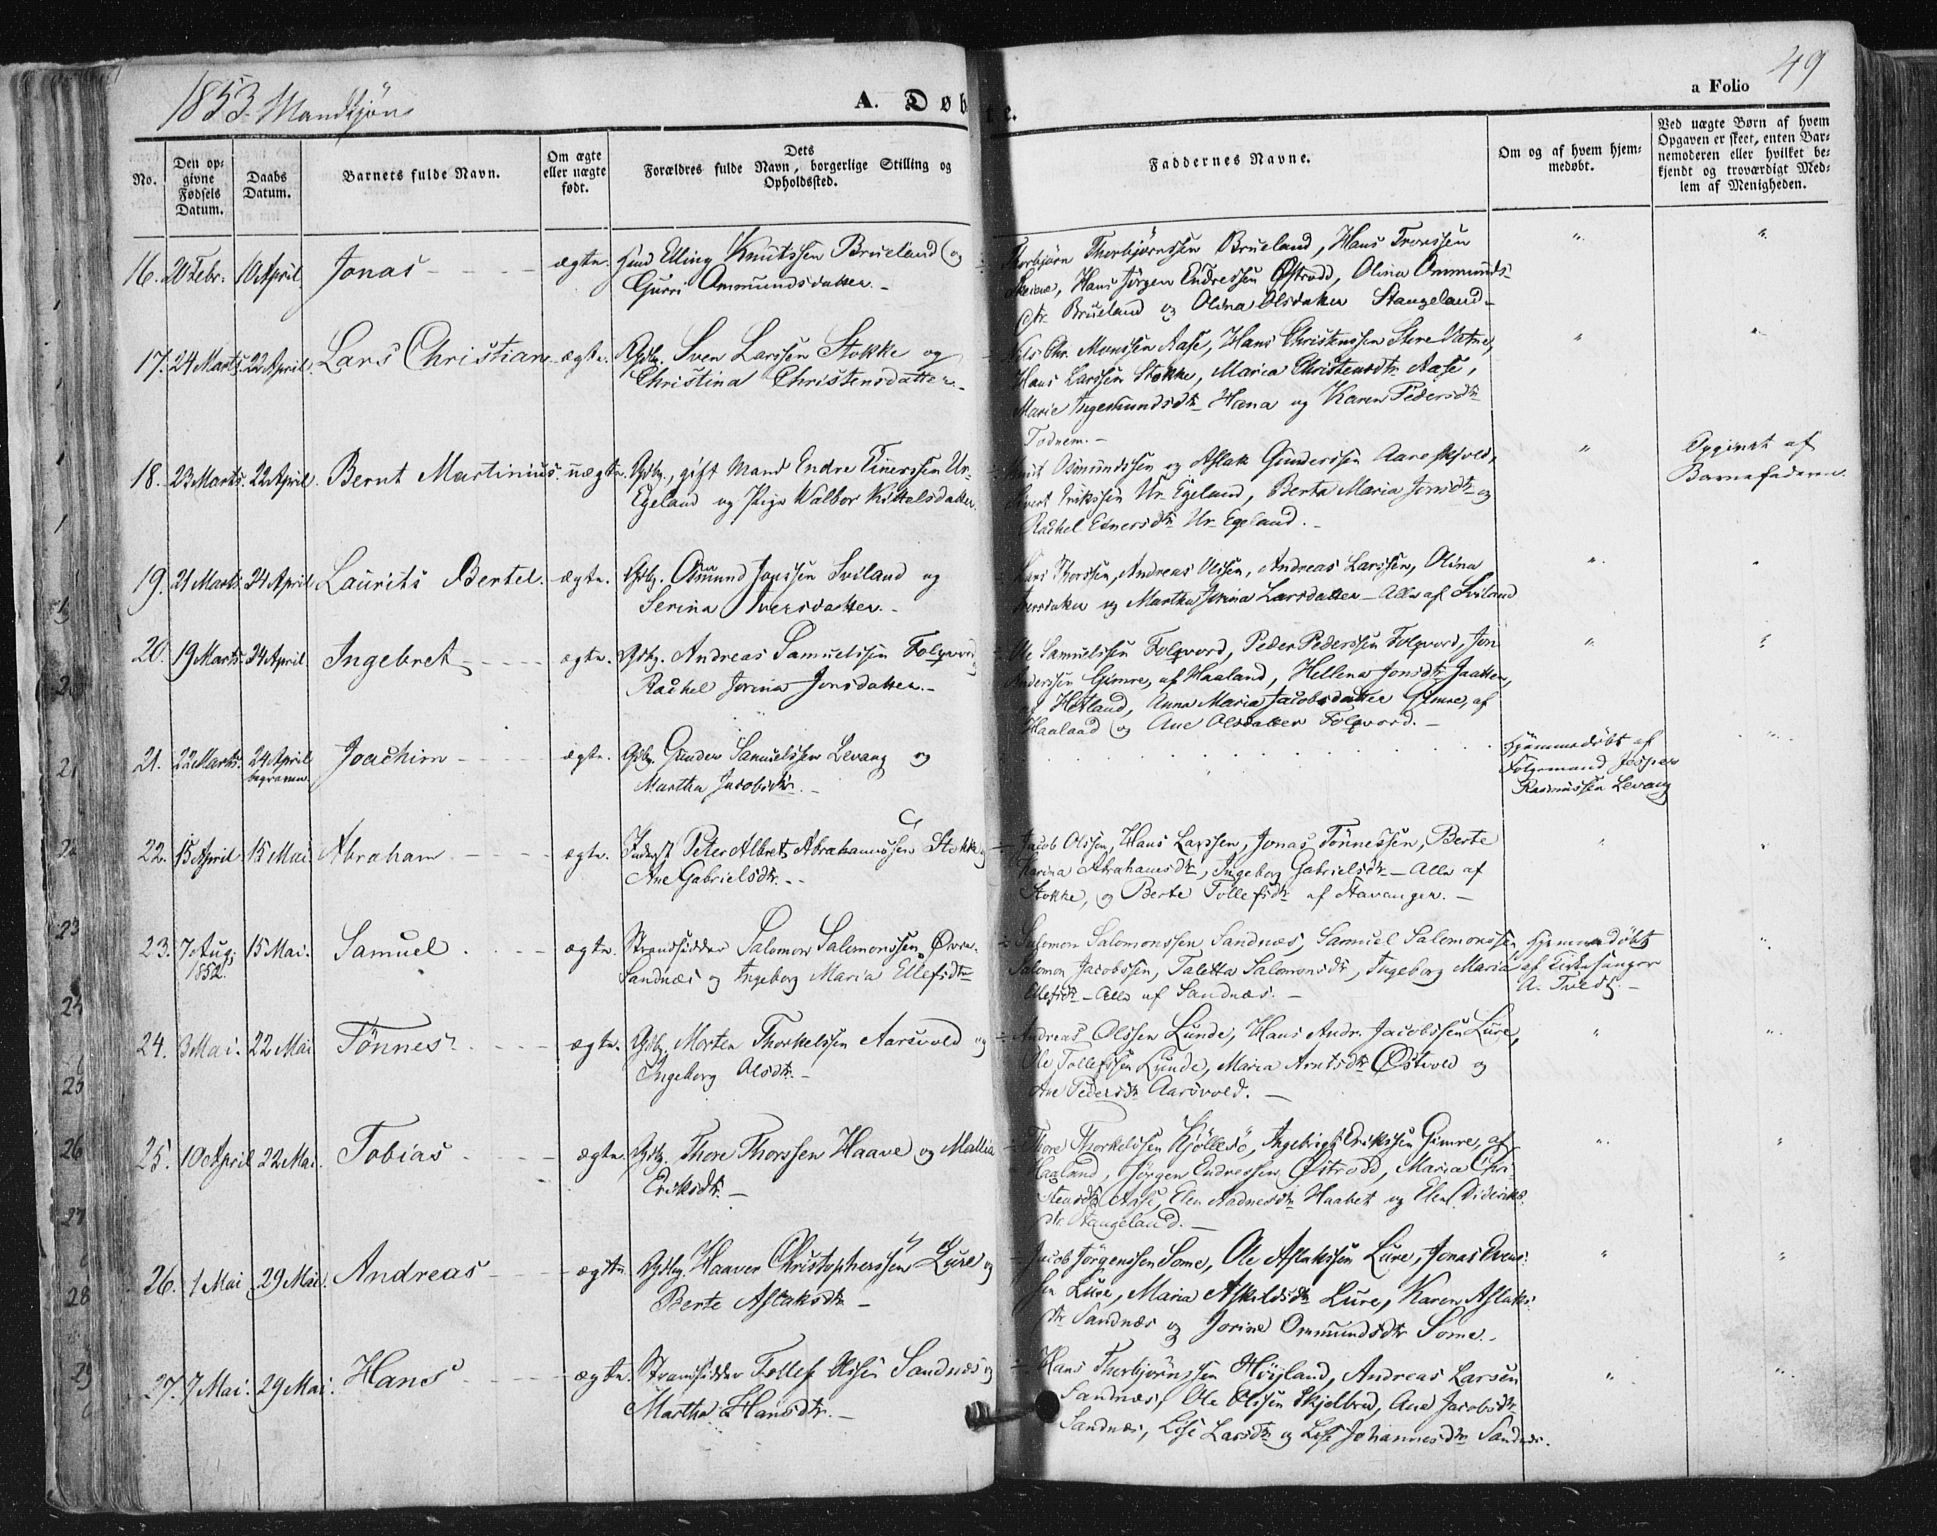 1853. Mandkjøn
A. Døbte.
a Folio 49
No.
Den opgivne Fødsels Datum.
Daabs Datum.
Barnets fulde Navn.
Om ægte eller uægte født.
Dets Forældres fulde Navn, borgerlige Stilling og Opholdssted.
Faddernes Navne.
Om og af hvem hjemmedøbt.
Ved uægte Børn af hvem Opgaven er skeet, enten Barnemoderen eller hvilket bekjendt og troværdigt Medlem af Menigheden.
16. 20 Febr. 10 April Jonas ægte. Elling Knutssen Brueland og
Gurri Ommundsdatter.
Thorbjørn Thorbjørnssen Brueland, Hans Tronssen
Hans Jørgen Endressen Østrodd, Olina Ommunds-
dtr. Brueland og Olina Olsdatter Stangeland
17. 24 Marts 22 April. Lars Christian ægte. Gdbg. Sven Larssen Stokke og
Christina Christensdatter.
Nils Chr. Monssen Aase, Hans Christenssen Store Vatne,
Hans Larssen Stokke, Maria Christensdtr Aase,
Marie Ingemundsdtr Hana og Karen Pedersdtr
Todnem.
18. 23 Marts. 22 April. Bernt Martinius. uægte. Gdbg. gift Mand Endre Einerssen Ur-
Egeland og Pige Walbor Kittelsdatter.
Knut Osmundssen og Aslak Gunderssen Aareskjold,
Sivert Erikssen Ur-Egeland, Berta Maria Jonsdtr og
Rachel Einersdtr Ur-Egeland.
Opgivet af
Barnefaderen.
19. 21 Marts 24 April Laurits Bertel. ægte. Gdbg. Osmund Jonssen Sviland og
Serina Iversdatter.
Lars Thorssen, Andreas Olssen, Andreas Larssen, Olina
Iversdatter og Martha Serina Larsdatter Alle af Sviland
20. 19 Marts. 24 April Ingebret ægte. Gdbg. Andreas Samuelssen Folqvord
Rachel Jorina Jonsdatter.
Ole Samuelssen Folqvord, Peder Pederssen Folqvord, Jon
Anderssen Gimre, af Haaland, Hellena Jonsdtr Jaatten,
af Hetland, Anna Maria Jacobsdatter Gimre, af
Haaland og Ane Olsdatter Folqvord.
21. 22 Marts. 24 April Joachim ægte. Gdbg. Gunder Samuelssen Levang og
begraven.
Martha Jacobsdtr.
Hjemmedøbt af
Følgemand Jesper
Rasmussen Levang
22. 15 April. 15 Mai Abraham ægte. Inderst Peter Albret Abrahamssen Stokke
Ane Gabrielsdtr.
Jacob Olssen, Hans Larssen, Jonas Tønnessen, Berte
Karina Abrahamsdtr, Ingeborg Gabrielsdtr Alle af
Stokke, og Berte Tollefsdtr af Stavanger.
23. 7 Aug. 1852. 15 Mai. Samuel ægte. Strandsidder Salomon Salomonssen Øvre-
Sandnæs og Ingeborg Maria Ellefsdtr
Salomon Salomonssen Sandnæs, Samuel Salomonssen
Salomon Jacobssen, Taletta Salomonsdtr, Ingeborg Maria
Ellefsdtr Alle af Sandnæs.
Hjemmedøbt
af Kirkesanger
A. Tvedt.
24. 3 Mai. 22 Mai Tønnes ægte. Gdbg. Morten Thorkelssen Aarsvold og
Ingeborg Olsdtr.
Andreas Olssen Lunde, Hans Andr. Jacobssen Lure,
Ole Tollefssen Lunde, Maria Arntsdtr Østvold og
Ane Pedersdtr Aarsvold.
25. 10 April 22 Mai. Tobias ægte. Gdbg. Thore Thorssen Haave og Mallia
Eriksdtr.
Thore Thorkelssen Kjøllesø, Ingebrigt Erikssen Gimre, af
Haaland, Jørgen Endressen Østrodd, Maria Chri-
stensdtr Aase, Elen Aadnesdtr Haabet og Elen Dideriks-
dtr Stangeland.
26. 1 Mai 29 Mai. Andreas ægte Gdbg. Haaver Christopherssen Lure og
Berte Aslaksdtr
Jacob Jørgenssen Some, Ole Aslakssen Lure, Jonas Svens-
sen Lure, Maria Askildsdtr Lure, Karen Aslaks-
dtr Sandnæs og Jorine Ommundsdtr Some.
27. 7 Mai. 29 Mai. Hans ægte. Strandsidder Tollef Olssen Sandnæs og
Martha Hansdtr.
Hans Thorbjørnssen Høijland, Andreas Larsen
Sandnæs, Ole Olssen Skjelbred, Ane Jacobsdtr
Sandnæs, Lise Larsdtr og Lise Johannesdtr Sandnæs.